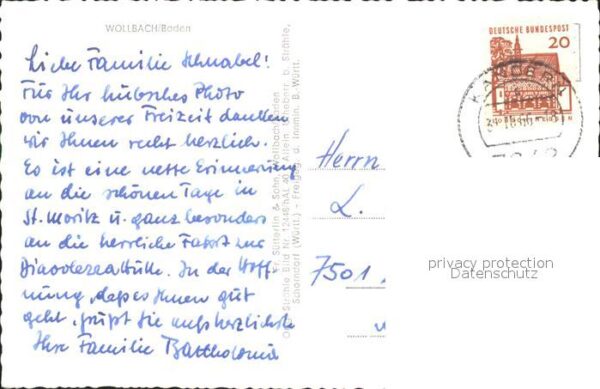 WOLLBACH/Baden
Liebe Familie Schnabel!
Für Ihr hübsches Photo
von unserer Freizeit danken
wir Ihnen recht herzlich.
Es ist eine nette Erinnerung
an die schönen Tage in
St. Moritz u. ganz besonders
an die herrliche Fahrt zur
Diavolezzahütte. In der Hoff-
nung, daß es Ihnen gut
geht, grüßt Sie aufs herzlichste
Ihre Familie Bartholomä
Fr. Sütterlin & Sohn, Wollbach/Baden
Schorndorf (Württ.) – Freigeg. d. Innenm. B. Württ.
DEUTSCHE BUNDESPOST
20
KANDERN
Herrn
L.
7501
privacy protection
Datenschutz